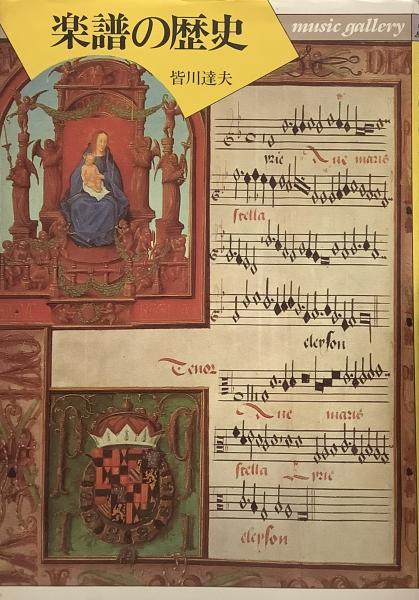 楽譜の歴史
皆川達夫
music gallery
yrie Aue maris
stella
eleyson
Tenor
Aue maris
stella kyrie
eleyson